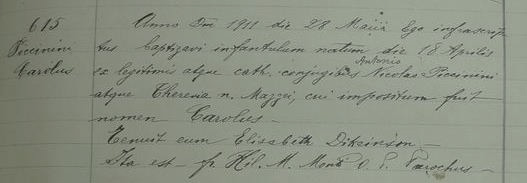 615
Piccinini
Carolus
Anno Dni 1911 die 28 Maii Ego infrascrip
tus baptizavi infantulum natum die 18 Aprilis
Antonio
ex legitimis atque cath. conjugibus Nicolao Piccinini
atque Theresia n. Mazzei, cui impositum fuit
nomen Carolus -
Tenuit eum Elisabeth Dikinson -
Ita est - fr. Hil. M. O. P. Parochus -